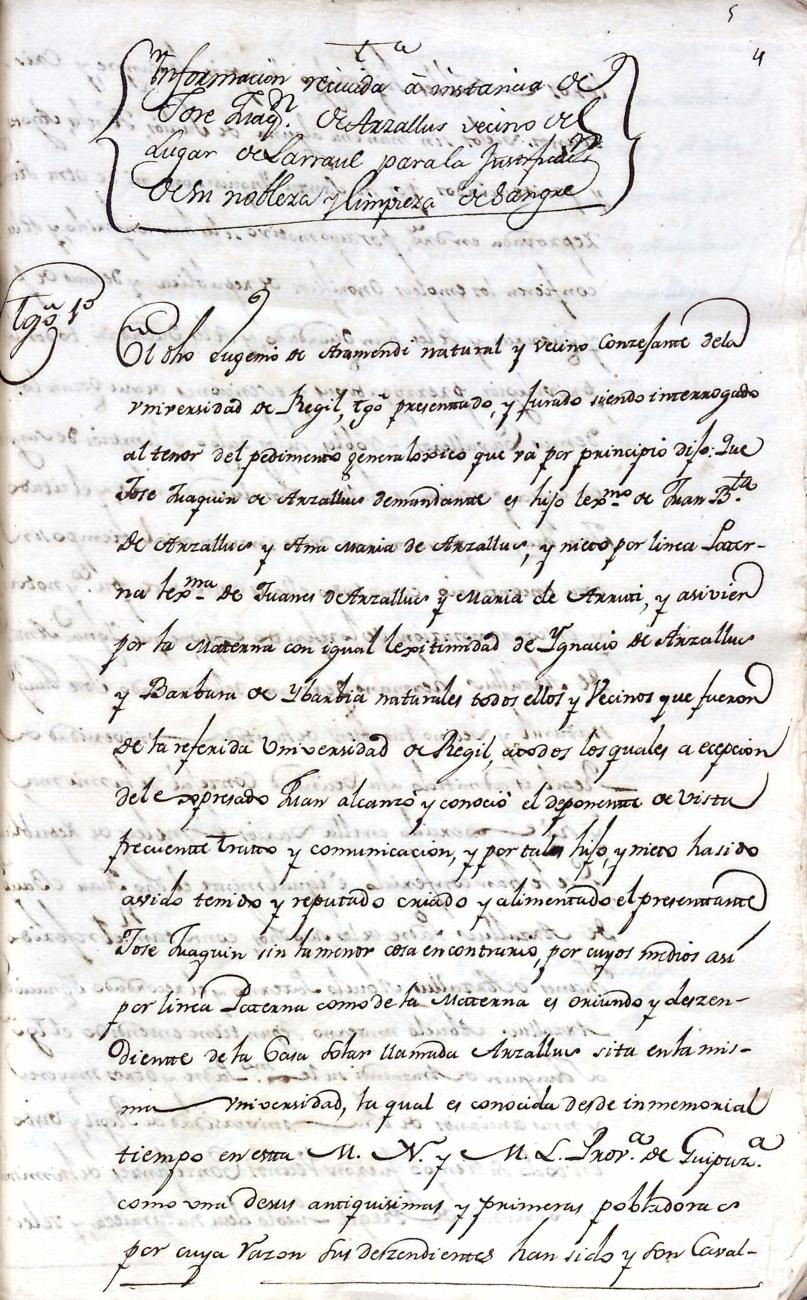 5
4
t.ª
Ynformacion recivida á instancia de
Jose Juaqⁿ. de Arzallus vecino del
Lugar de Larraul para la Justificaⁿ.
de su nobleza y limpieza de Sangre
Tgõ 1º
El dho Eugenio de Aramendi natural y vecino Conzejante dela
Universidad de Regil, tgõ presenttado, y jurado siendo interrogado
al tenor del pedimento genealoxico que vá por principio dijo: Que
Jose Juaquin de Arzallus demandante es hijo lexmo. de Juan Bta.
de Arzallus y Ana Maria de Arzallus, y nieto por linea Pater-
na lexma. de Juanes de Arzallus y Maria de Arruti, y asivien
por la Materna con igual lexitimidad de Ygnacio de Arzallus
y Barbara de Ybarbia naturales todos ellos y Vecinos que fueron
de la referida Universidad de Regil, a todos los quales a ecepcion
del expresado Juan alcanzó y conoció el deponente de vista
frecuentte tratto y comunicacion, y por tal hijo, y nieto ha sido
avido tenido y reputado criado y alimentado el presenttante
Jose Juaquin sin la menor cosa en contrario, por cuyos medios así
por linea Paterna como de la Materna es oriundo y deszen-
dientte de la Casa Solar llamada Arzallus sita en la mis-
ma Universidad, la qual es conocida desde inmemorial
tiempo en estta M. N. y M. L. Prov.ª de Guipuz.ª
como una de sus antiquisimas y primeras pobladoras
por cuya razon sus deszendientes han sido y son Caval-